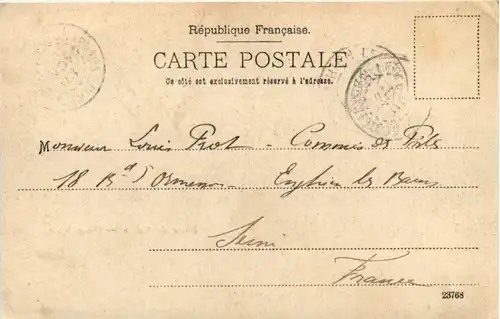 République Française.
CARTE POSTALE
Ce côté est exclusivement réservé à l'adresse.
Monsieur Louis Prot - Commis des P
18 Bd d'Ormesson Enghien les Bains
Seine
France
23768